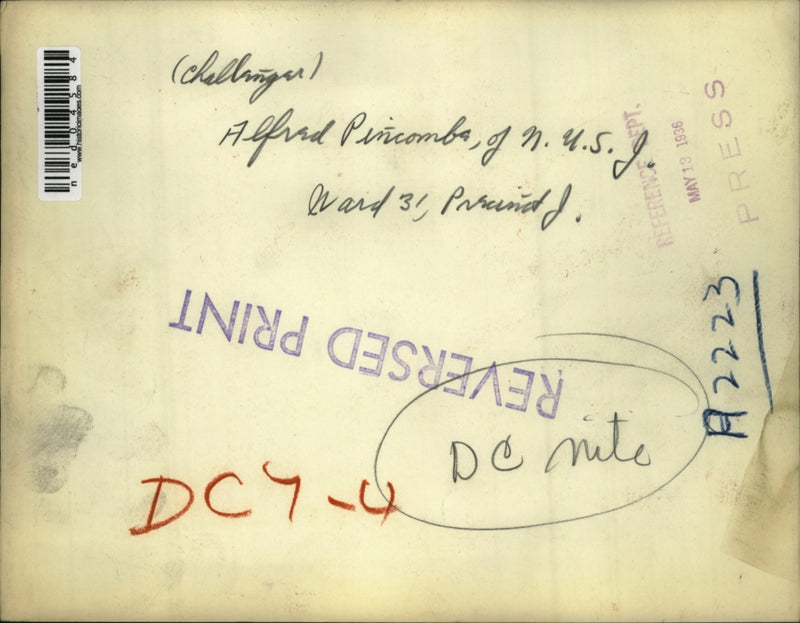 (Challenger)
Alfred Pincombe, of N. U. S. J.
Ward 31, Precinct J.
REFERENCE DEPT.
MAY 13 1936
PRESS
REVERSED PRINT
A2223
DC nite
DCY-4
ned04584
www.historicimages.com